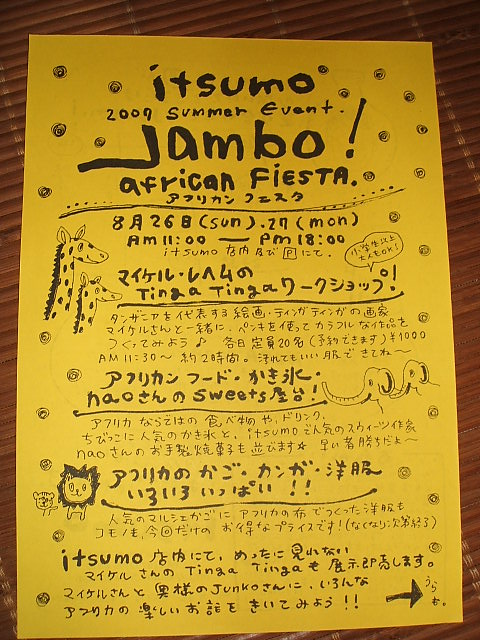 itsumo
2007 summer Event.
Jambo!
african FIESTA.
アフリカン フェスタ
8月26日(sun).27(mon)
AM 11:00 — Pm 18:00
itsumo 店内及びPにて。
小学生以上
大人もOK!
マイケル・レヘムの
Tinga Tingaワークショップ!
タンザニアを代表する絵画・ティンガティンガの画家
マイケルさんと一緒に、ペンキを使ってカラフルな作品を
つくってみよう♪ 各日定員20名(予約できます)¥1000
AM 11:30~ 約2時間。汚れてもいい服できてね~
アフリカン フード・かき氷・
naoさんのsweets屋台!
アフリカ ならではの食べ物や、ドリンク、
ちびっこに人気のかき氷と、itsumoで人気のスウィーツ作家
naoさんのお手製焼菓子も並びます☆ 早い者勝ちだよ~
アフリカのかご・カンガ・洋服
いろいろいっぱい!!
人気のマルシェかごに、アフリカの布でつくった洋服も
コモノも、今回だけの お得なプライスです!(なくなり次第終了)
itsumo 店内にて、めったに見れない
マイケルさんのTinga Tingaも展示即売します。
マイケルさんと奥様のJunkoさんに、いろんな
アフリカの楽しいお話をきいてみよう!!
うらも。